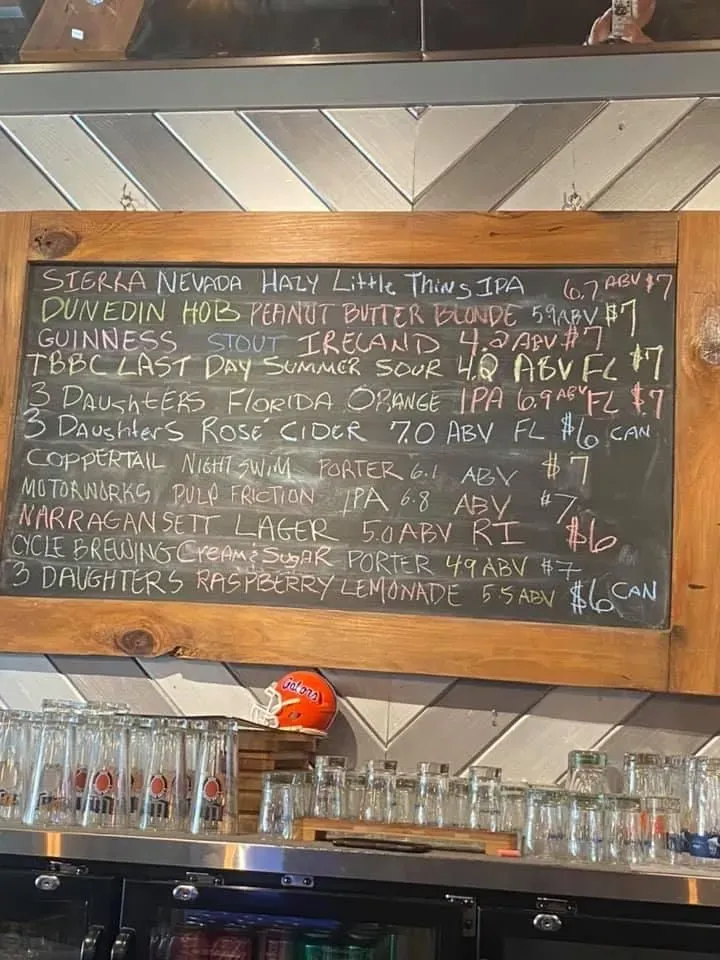 SIERRA NEVADA HAZY Little Thing IPA 6.7 ABV $7
DUNEDIN HOB PEANUT BUTTER BLONDE 5.9 ABV $7
GUINNESS STOUT IRELAND 4.2 ABV $7
TBBC LAST DAY SUMMER SOUR 4.2 ABV FL $7
3 DAUGHTERS FLORIDA ORANGE IPA 6.9 ABV FL $7
3 DAUGHTERS ROSÉ CIDER 7.0 ABV FL $6 CAN
COPPERTAIL NIGHT SWIM PORTER 6.1 ABV $7
MOTORWORKS PULP FRICTION IPA 6.8 ABV $7
NARRAGANSETT LAGER 5.0 ABV RI $6
CYCLE BREWING CREAM & SUGAR PORTER 4.9 ABV $7
3 DAUGHTERS RASPBERRY LEMONADE 5.5 ABV $6 CAN
Gators